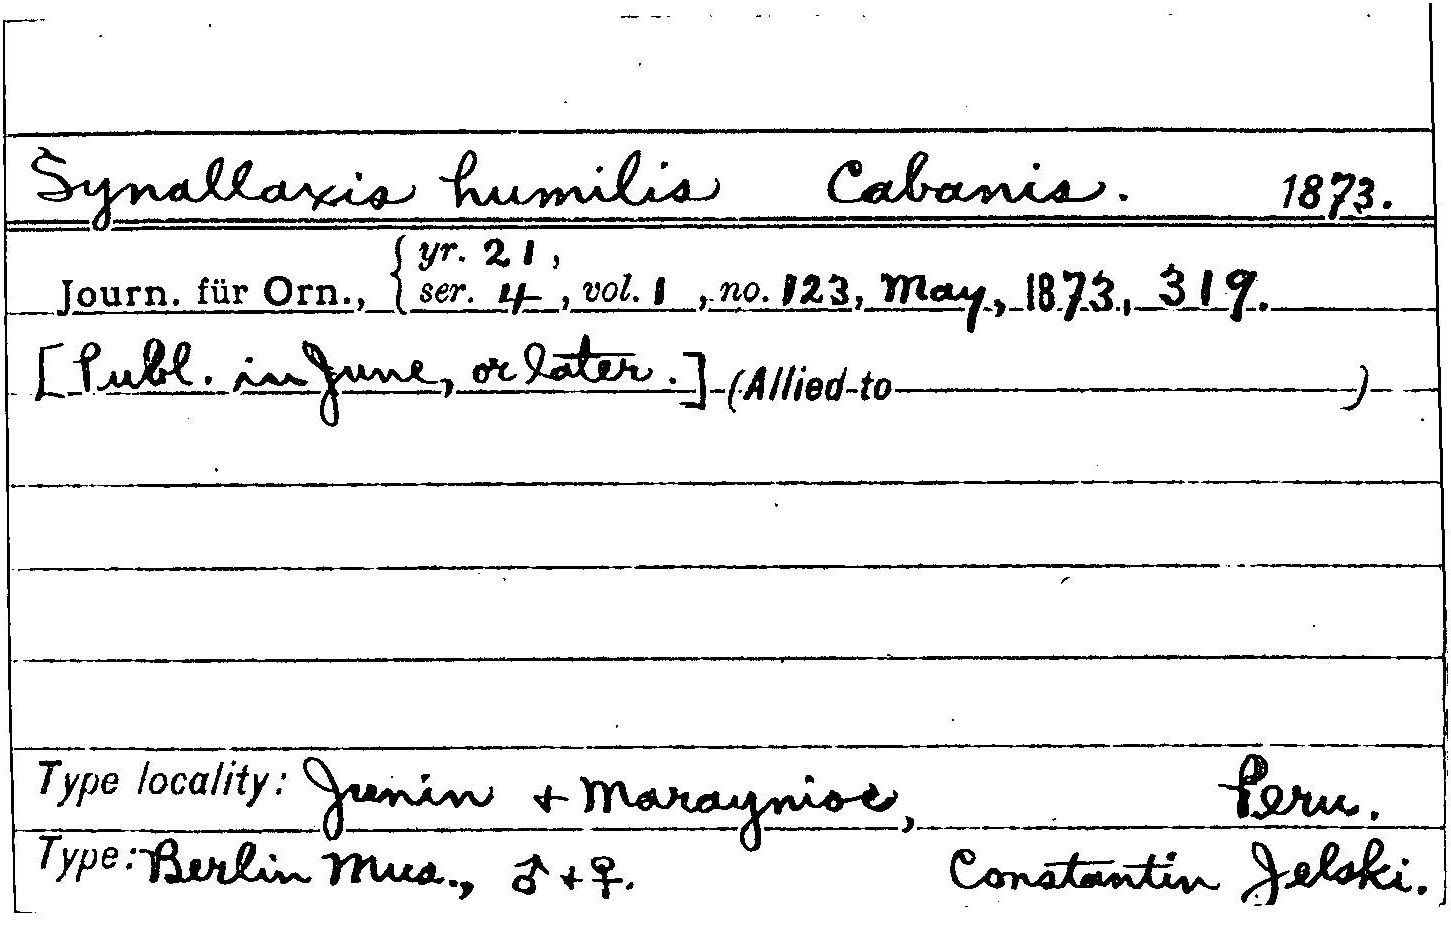 Synallaxis humilis Cabanis. 1873.
yr. 21,
Journ. für Orn., ser. 4, vol. 1, no. 123, May, 1873, 319.
[Publ. in June, or later.] (Allied to )
Type locality: Junin + Maraynioc, Peru.
Type: Berlin Mus., ♂ + ♀. Constantin Jelski.